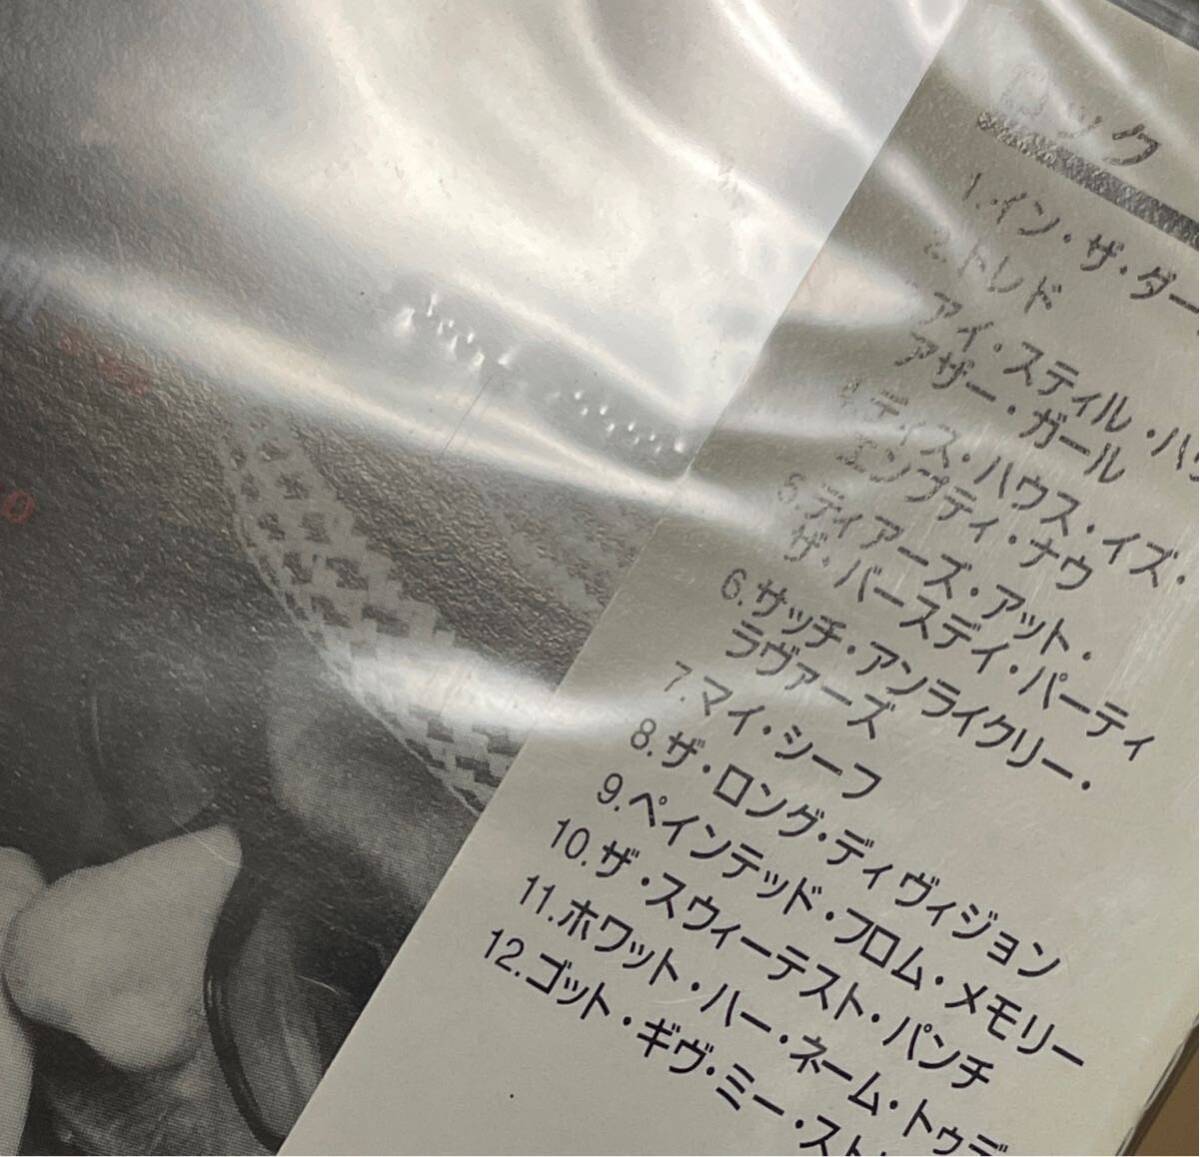 ロック
1.イン・ザ・ダー
2.トレド
アイ・スティル・ハヴ
アザー・ガール
4.ディス・ハウス・イズ・
エンプティ・ナウ
5.ディアーズ・アット・
ザ・バースデイ・パーティ
6.サッチ・アンライクリー・
ラヴァーズ
7.マイ・シーフ
8.ザ・ロング・ディヴィジョン
9.ペインテッド・フロム・メモリー
10.ザ・スウィーテスト・パンチ
11.ホワット・ハー・ネーム・トゥデ
12.ゴット・ギヴ・ミー・スト